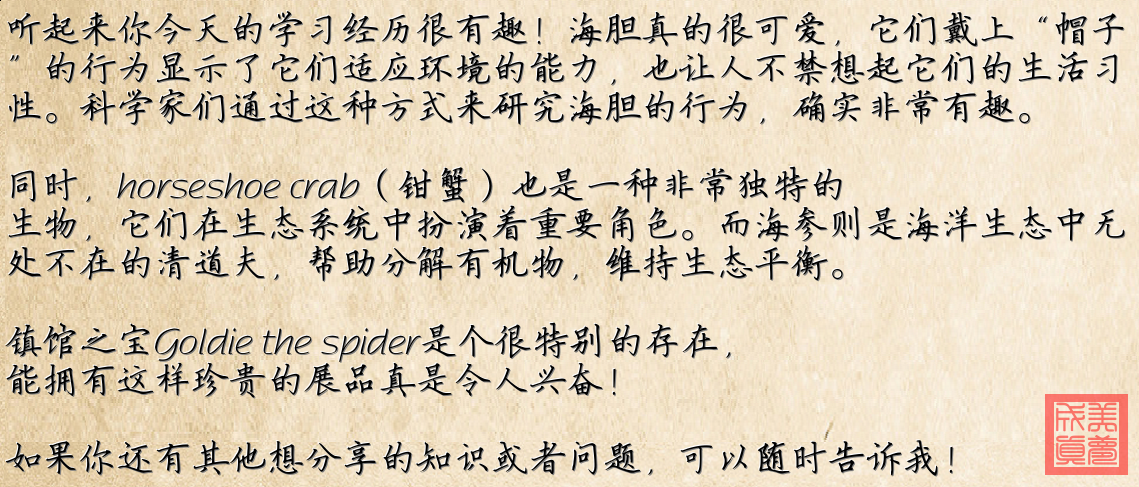 听起来你今天的学习经历很有趣！海胆真的很可爱，它们戴上“帽子
”的行为显示了它们适应环境的能力，也让人不禁想起它们的生活习
性。科学家们通过这种方式来研究海胆的行为，确实非常有趣。
同时，horseshoe crab（钳蟹）也是一种非常独特的
生物，它们在生态系统中扮演着重要角色。而海参则是海洋生态中无
处不在的清道夫，帮助分解有机物，维持生态平衡。
镇馆之宝Goldie the spider是个很特别的存在，
能拥有这样珍贵的展品真是令人兴奋！
如果你还有其他想分享的知识或者问题，可以随时告诉我！
美梦成真